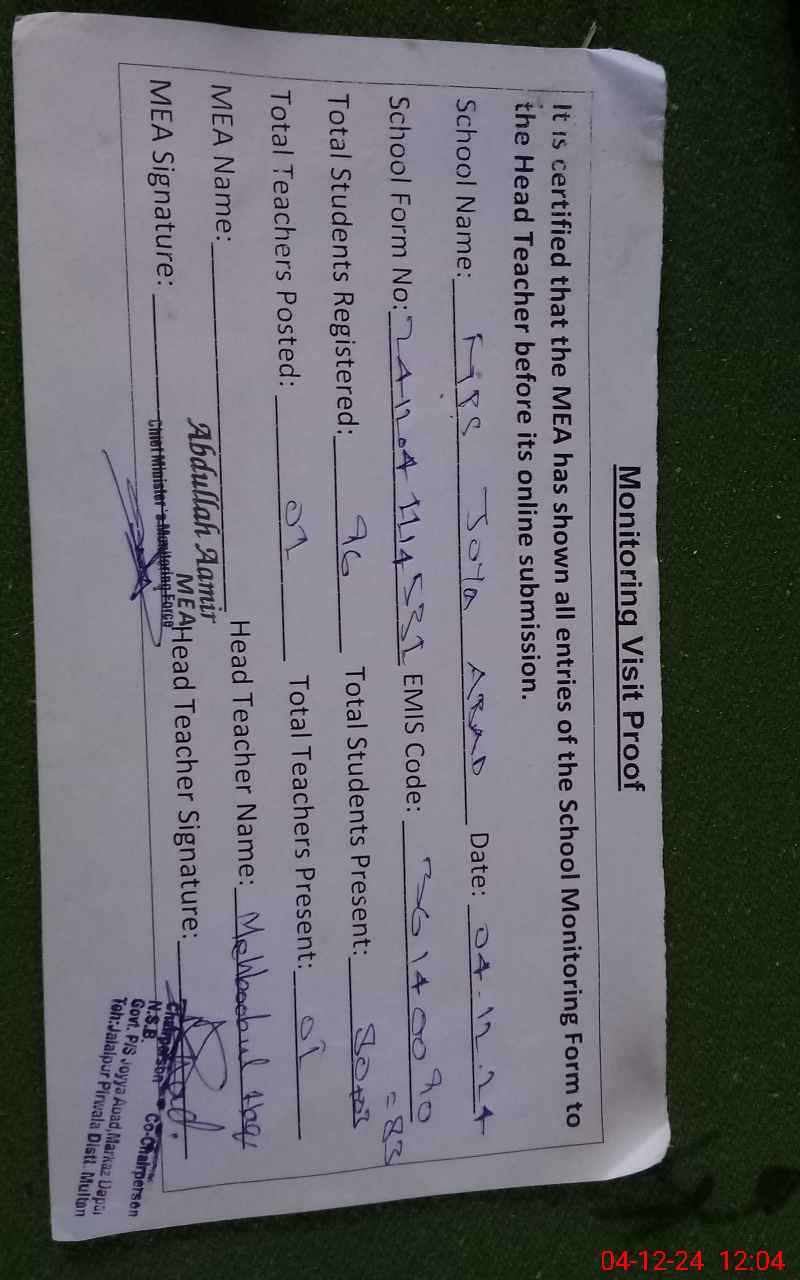 Monitoring Visit Proof
It is certified that the MEA has shown all entries of the School Monitoring Form to
the Head Teacher before its online submission.
School Name: Joya Abad Date: 04.12.24
School Form No: EMIS Code: 36140090
Total Students Registered: 96 Total Students Present: 80+03 = 83
Total Teachers Posted: 01 Total Teachers Present: 01
MEA Name: Abdullah Aamir Head Teacher Name: Mehboobul Haq
MEA
MEA Signature: Chief Minister's Monitoring Force Head Teacher Signature:
Chairperson Co-Chairperson
N.S.B.
Govt. P/S Joyya Abad, Markaz
Teh: Jalalpur Pirwala Distt. Multan
04-12-24 12:04